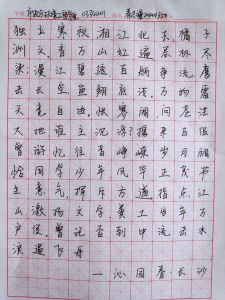 独立寒秋湘江北去橘子
洲头,看万山红遍层林尽
染漫江碧透百舸争流鹰
击长空鱼翔浅底万类霜
天竞自由怅寥阔问苍茫
大地谁主沉浮?携来百侣
曾游忆往昔峥嵘岁月稠
恰同学少年风华正茂书
生意气,挥斥方遒指点江
山,激扬文字粪土当年万
户侯,曾记否到中流击水
浪遏飞舟
—沁园春长沙